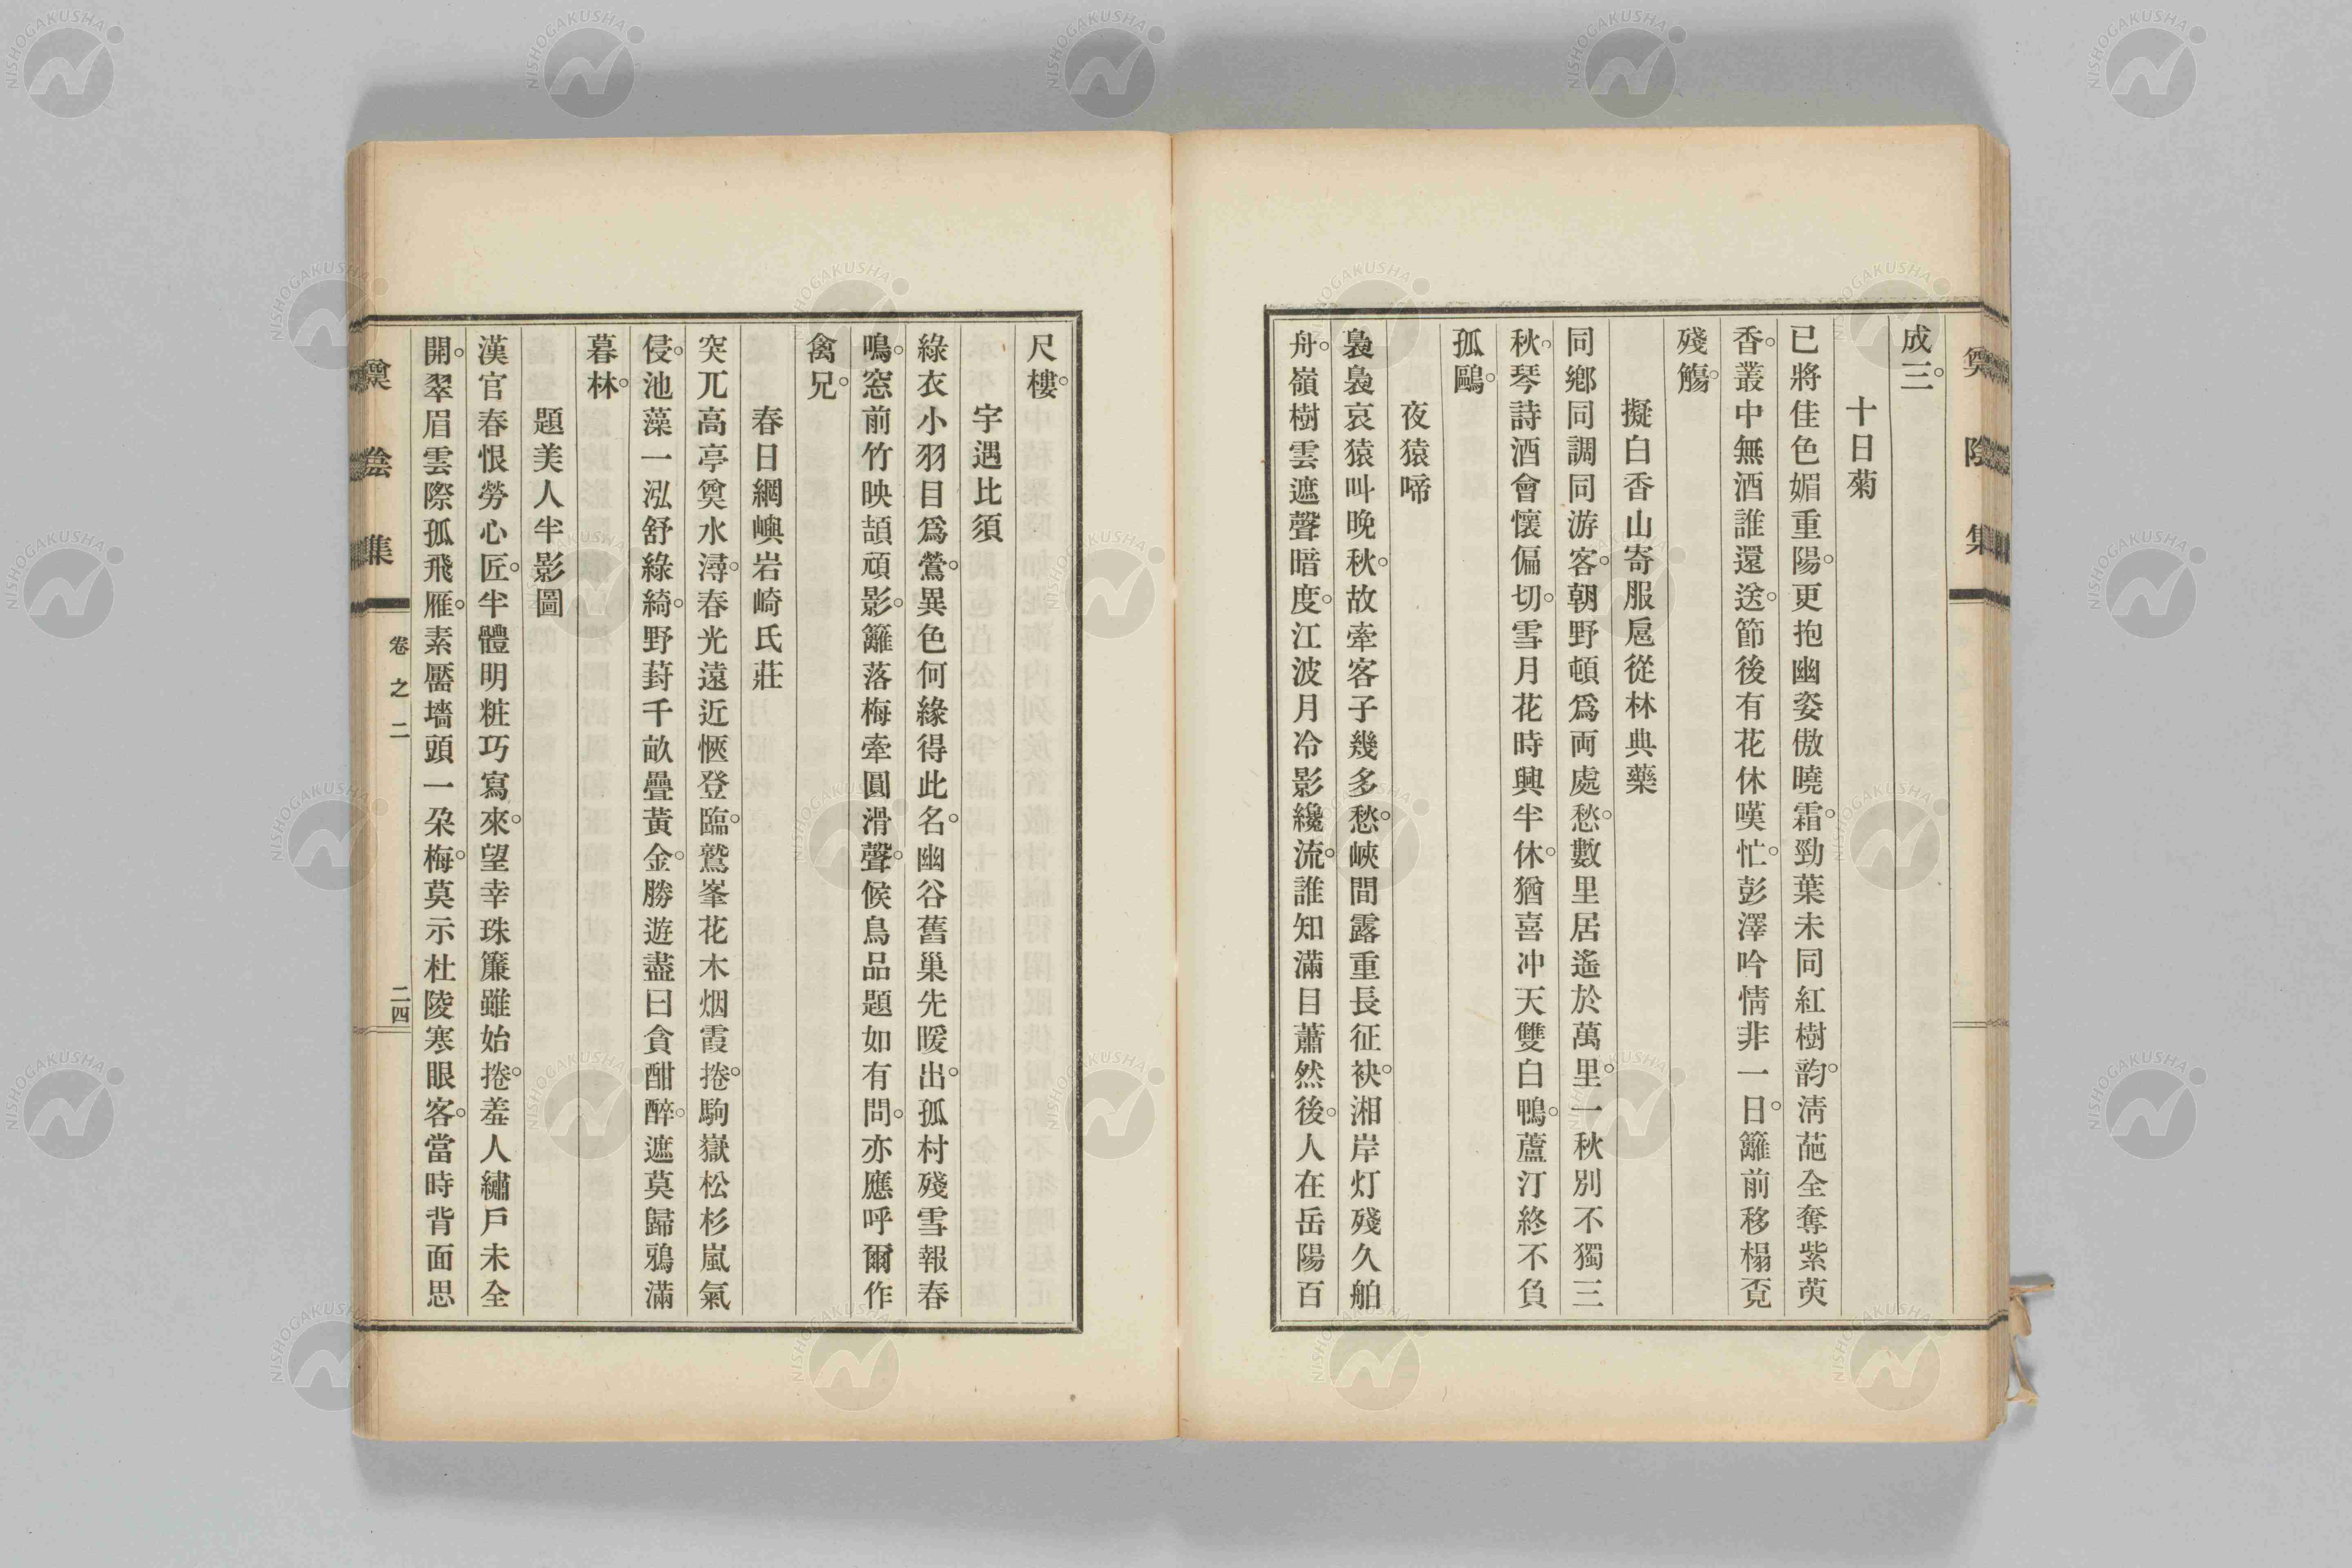 成三。
十日菊
已將佳色媚重陽。更抱幽姿傲曉霜。勁葉未同紅樹韵。淸葩全奪紫萸
香。叢中無酒誰還送。節後有花休嘆忙。彭澤吟情非一日。籬前移榻覔
殘觴。
擬白香山寄服扈從林典藥
同鄕同調同游客。朝野頓爲両處愁。數里居遙於萬里。一秋別不獨三
秋。琴詩酒會懷偏切。雪月花時興半休。猶喜冲天雙白鴨。蘆汀終不負
孤鷗。
夜猿啼
裊裊哀猿叫晚秋。故牽客子幾多愁。峽間露重長征袂。湘岸灯殘久舶
舟。嶺樹雲遮聲暗度。江波月冷影纔流。誰知滿目蕭然後。人在岳陽百
尺樓。
宇遇比須
綠衣小羽目爲鶯。異色何緣得此名。幽谷舊巢先暖出。孤村殘雪報春
鳴。窓前竹映頡頏影。籬落梅牽圓滑聲。候鳥品題如有問。亦應呼爾作
禽兄。
春日網嶼岩崎氏莊
突兀高亭奠水潯。春光遠近愜登臨。鷲峯花木烟霞捲。駒嶽松杉嵐氣
侵。池藻一泓舒綠綺。野葑千畝疊黃金。勝遊盡日貪酣醉。遮莫歸鴉滿
暮林。
題美人半影圖
漢官春恨勞心匠。半體明粧巧寫來。望幸珠簾雖始捲。羞人繡戶未全
開。翠眉雲際孤飛雁。素靨墻頭一朶梅。莫示杜陵寒眼客。當時背面思
卷之二
二四